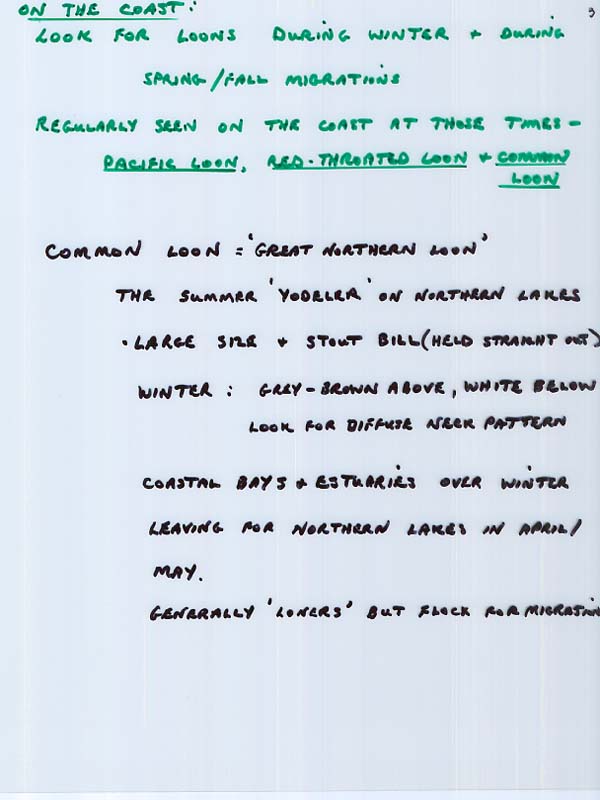 3
ON THE COAST:
LOOK FOR LOONS DURING WINTER + DURING
SPRING/FALL MIGRATIONS
REGULARLY SEEN ON THE COAST AT THOSE TIMES -
PACIFIC LOON, RED-THROATED LOON + COMMON
LOON
COMMON LOON = 'GREAT NORTHERN LOON'
THE SUMMER 'YODELER' ON NORTHERN LAKES
• LARGE SIZE + STOUT BILL (HELD STRAIGHT OUT)
WINTER: GREY-BROWN ABOVE, WHITE BELOW
LOOK FOR DIFFUSE NECK PATTERN
COASTAL BAYS + ESTUARIES OVER WINTER
LEAVING FOR NORTHERN LAKES IN APRIL/
MAY.
GENERALLY 'LONERS' BUT FLOCK FOR MIGRATION